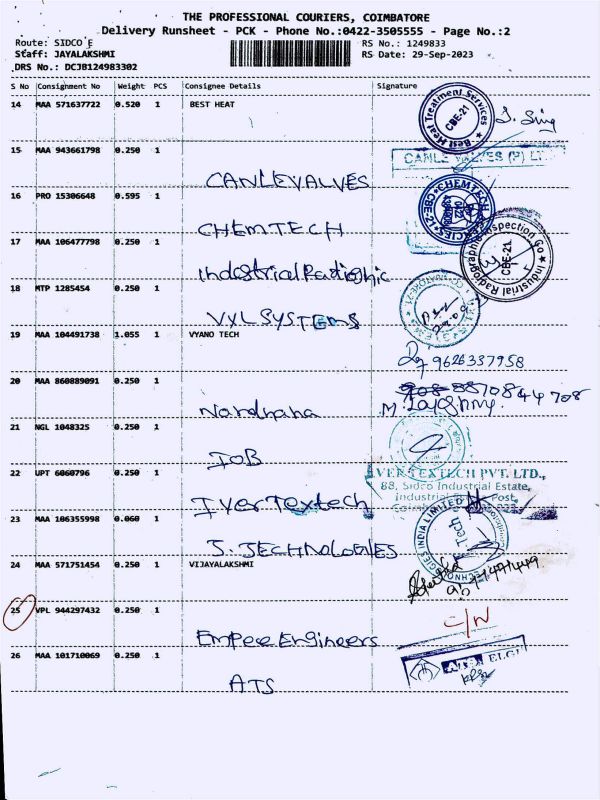 THE PROFESSIONAL COURIERS, COIMBATORE
Delivery Runsheet - PCK - Phone No.:0422-3505555 - Page No.:2
Route: SIDCO E
Staff: JAYALAKSHMI
DRS No.: DCJB124983302
RS No.: 1249833
RS Date: 29-Sep-2023
S No Consignment No Weight PCS Consignee Details Signature
14 MAA 571637722 0.520 1 BEST HEAT
Best Heat Treatment Services
CBE-21
15 MAA 943661798 0.250 1
CANLEVALVES
16 PRO 15306648 0.595 1
CHEMTECH
CHEMTECH
17 MAA 106477798 0.250 1
Industrial Radiographic Inspection Co
CBE-21
18 MTP 1285454 0.250 1
VXL SYSTEMS
19 MAA 104491738 1.055 1 VYANO TECH
9626337958
20 MAA 860889091 0.250 1
Nardhana
8870844708
21 NGL 1048325 0.250 1
IOB
22 UPT 6060796 0.250 1
IverTextech
VERTEXTECH PVT. LTD.,
88, Sidco Industrial Estate,
Industrial Post,
23 MAA 106355998 0.060 1
S. TECHNOLOGIES
24 MAA 571751454 0.250 1 VIJAYALAKSHMI
25 VPL 944297432 0.250 1
C/N
Empee Engineers
26 MAA 101710069 0.250 1
ELGI
ATS